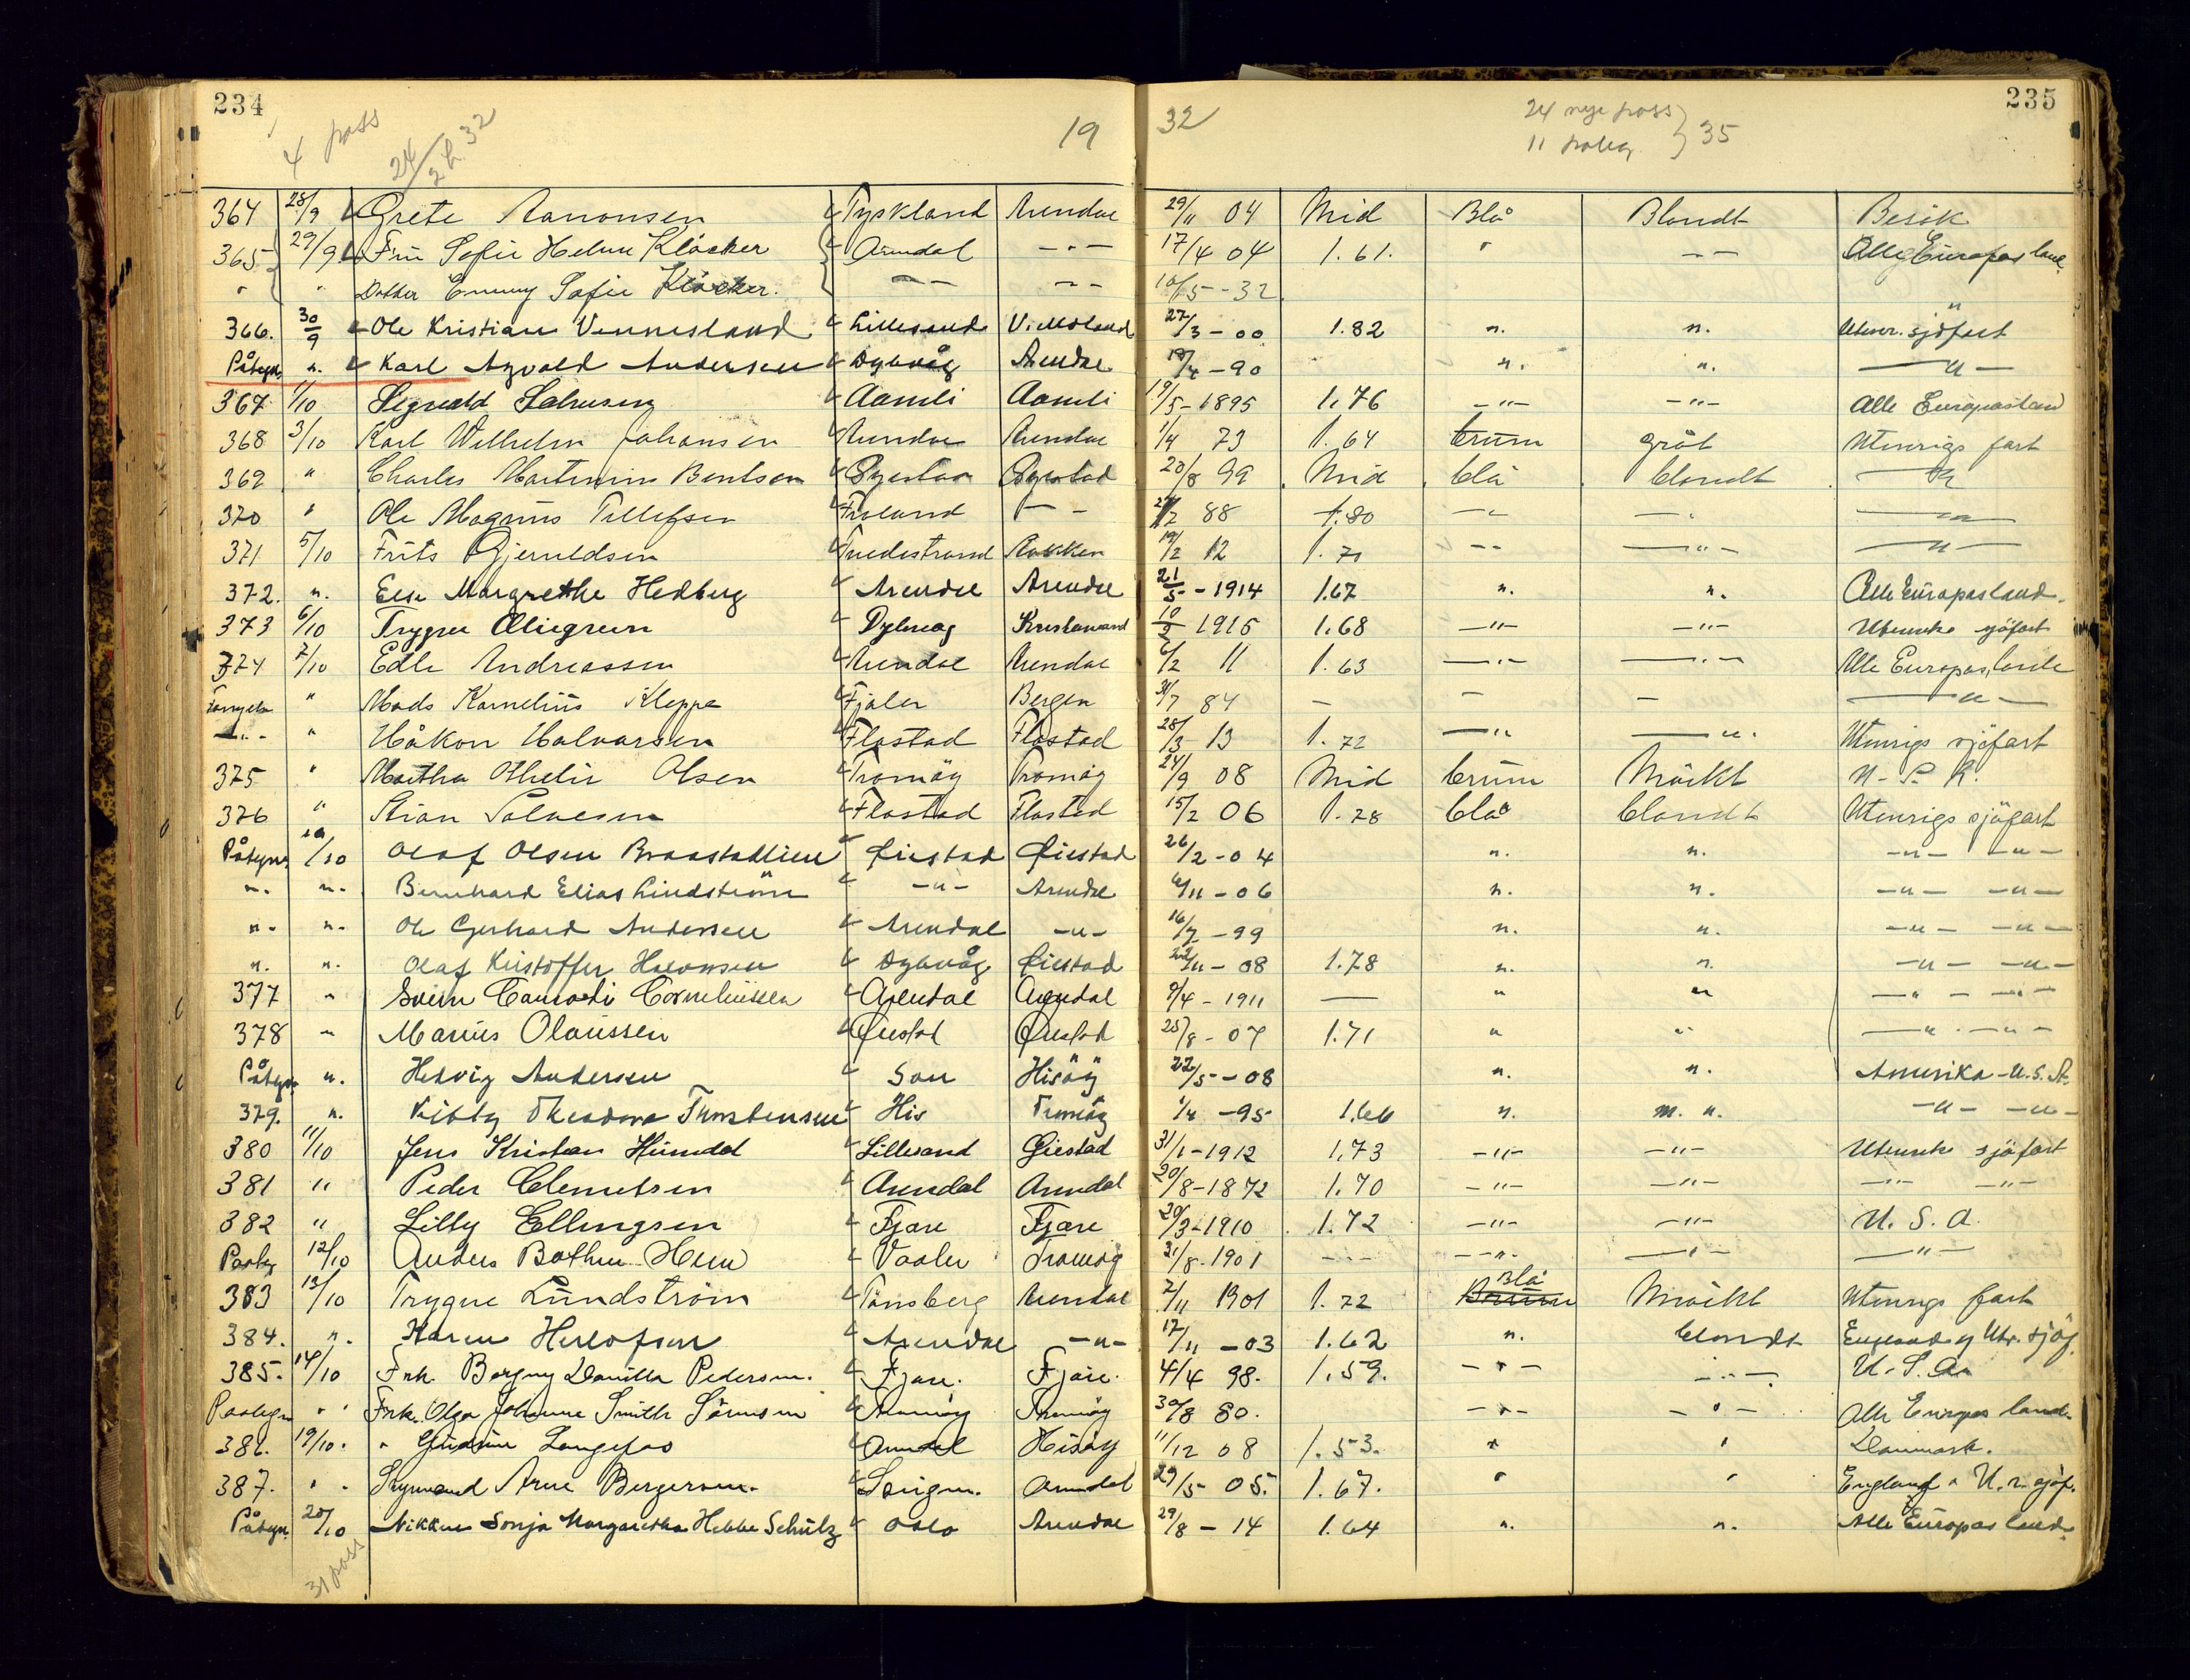 234
4 pass
24/9 32
19
32
24 nye pass
11 påteg.
35
235
364 28/9 Grete Aanonsen Tyskland Arendal 29/11 04 Mid Blå Blondt Besök
365 29/9 Fru Sofie Helene Klöcker Arendal — " — 17/4 04 1.61. " — — Alle Europas land
" " Datter Emmy Sofie Klöcker. — — — — 10/5 - 32
366. 30/9 Ole Kristian Vennesland Lillesand V. Moland 27/3 - 00 1.82 n. n. Utenr. sjöfart
Påtegn. n. Karl Agvald Andersen Dybvåg Arendal 19/4 - 90 n. n. — " —
367 1/10 Sigvald Salvesen Aamli Aamli 19/5 - 1895 1.76 — " — — " — Alle Europas land
368 3/10 Karl Wilhelm Johansen Arendal Arendal 1/4 73 1.64 brun gråt Utenrigs fart
369 " Charles Martinius Bentsen Öyestad Öyestad 20/8 99 Mid blå blondt — " —
370 " Ole Magnus Tellefsen Froland — — 88 1.80 — " — " — " —
371 5/10 Frits Gjeruldsen Tvedestrand Aakken 19/2 12 1.71 — — — " — — " —
372. n. Else Margrethe Hedberg Arendal Arendal 21/5 - 1914 1.67 n. n. Alle Europas land.
373 6/10 Trygve Dybvåg Kristiansand 10/2 1915 1.68 — " — — " — Utenriks sjöfart
374 7/10 Edle Andreassen Arendal Arendal 6/2 11 1.63 — " — — " — Alle Europas lande
Fornyels " Mads Kornelius Kleppe Fjaler Bergen 31/7 84 — — — — " —
— " — " Håkon Halvorsen Flostad Flostad 28/3 - 13 1.72 — " — " Utenrigs sjöfart
375 " Martha Othelie Olsen Tromöy Tromöy 24/9 08 Mid brun Mörkt
376 " Stian Salvesen Flostad Flostad 15/2 06 1.78 blå blondt Utenrigs sjöfart
Påtegn. 10/10 Olaf Olsen Braastadlien Öiestad Öiestad 26/2 - 04 n. n. — " — — " —
n. n. Bernhard Elias Lindström — " — Arendal 6/11 - 06 n. n. — " — — " —
n. n. Ole Gerhard Andersen Arendal — " — 16/7 - 99 n. n. — " — — " —
n. n. Olaf Kristoffer Halvorsen Dybvåg Öiestad 22/11 - 08 1.78 n. n. — " — — " —
377 " Svern Corneliussen Arendal Arendal 9/4 - 1911 — " " — " — — " —
378 " Marius Olaussen Öiestad Öiestad 25/8 - 07 1.71 " " — " — " —
Påtegn. n. Hedvig Andersen Son Hisöy 22/5 - 08 n. n. Amerika - U.S.A.
379. n. Kitty Theodora Thorstensen His Tromöy 1/4 - 95 1.66 n. m. n. — " — — " —
380 11/10 Jens Kristian Hundal Lillesand Öiestad 31/1 - 1912 1.73 — " — — " — Utenriks sjöfart
381 " Peder Clemetsen Arendal Arendal 20/8 - 1872 1.70 — " — — " — — " — — " —
382 " Lilly Ellingsen Fjære Fjære 20/3 - 1910 1.72 — " — — " — U. S. A.
Paateg 12/10 Anders Bothner Hem Vaaler Tromöy 21/8 - 1901 - - - — " — — " — — " —
383 13/10 Trygve Lundström Tönsberg Arendal 2/11 1901 1.72 Brun Blå Mörkt Utenrigs fart
384. n. Karen Herlofson Arendal — " — 17/11 - 03 1.62 n. blondt England og Utr. sjöf.
385. 14/10 Frk. Borgny Davilla Pedersen. Fjære. Fjære. 4/4 98. 1.59. — " — — " — U. S. A.
Paategn " " Frk. Olga Johanne Smith Sörensen Tromöy Tromöy 30/8 80. — " — — " — Alle Europas land.
386. 19/10. " Gudrun Langefos Arendal Hisöy 11/12 08 1.53. " " Danmark.
387. " " Styrmand Arne Bergersen. Arendal 29/5 05. 1.67. " " England + U. r. sjöf.
Påtegn. 20/10 Nikken Sonja Margaretha Hebbe Schultz Oslo Arendal 29/8 - 14 1.64 n. n. Alle Europas land.
31 pass